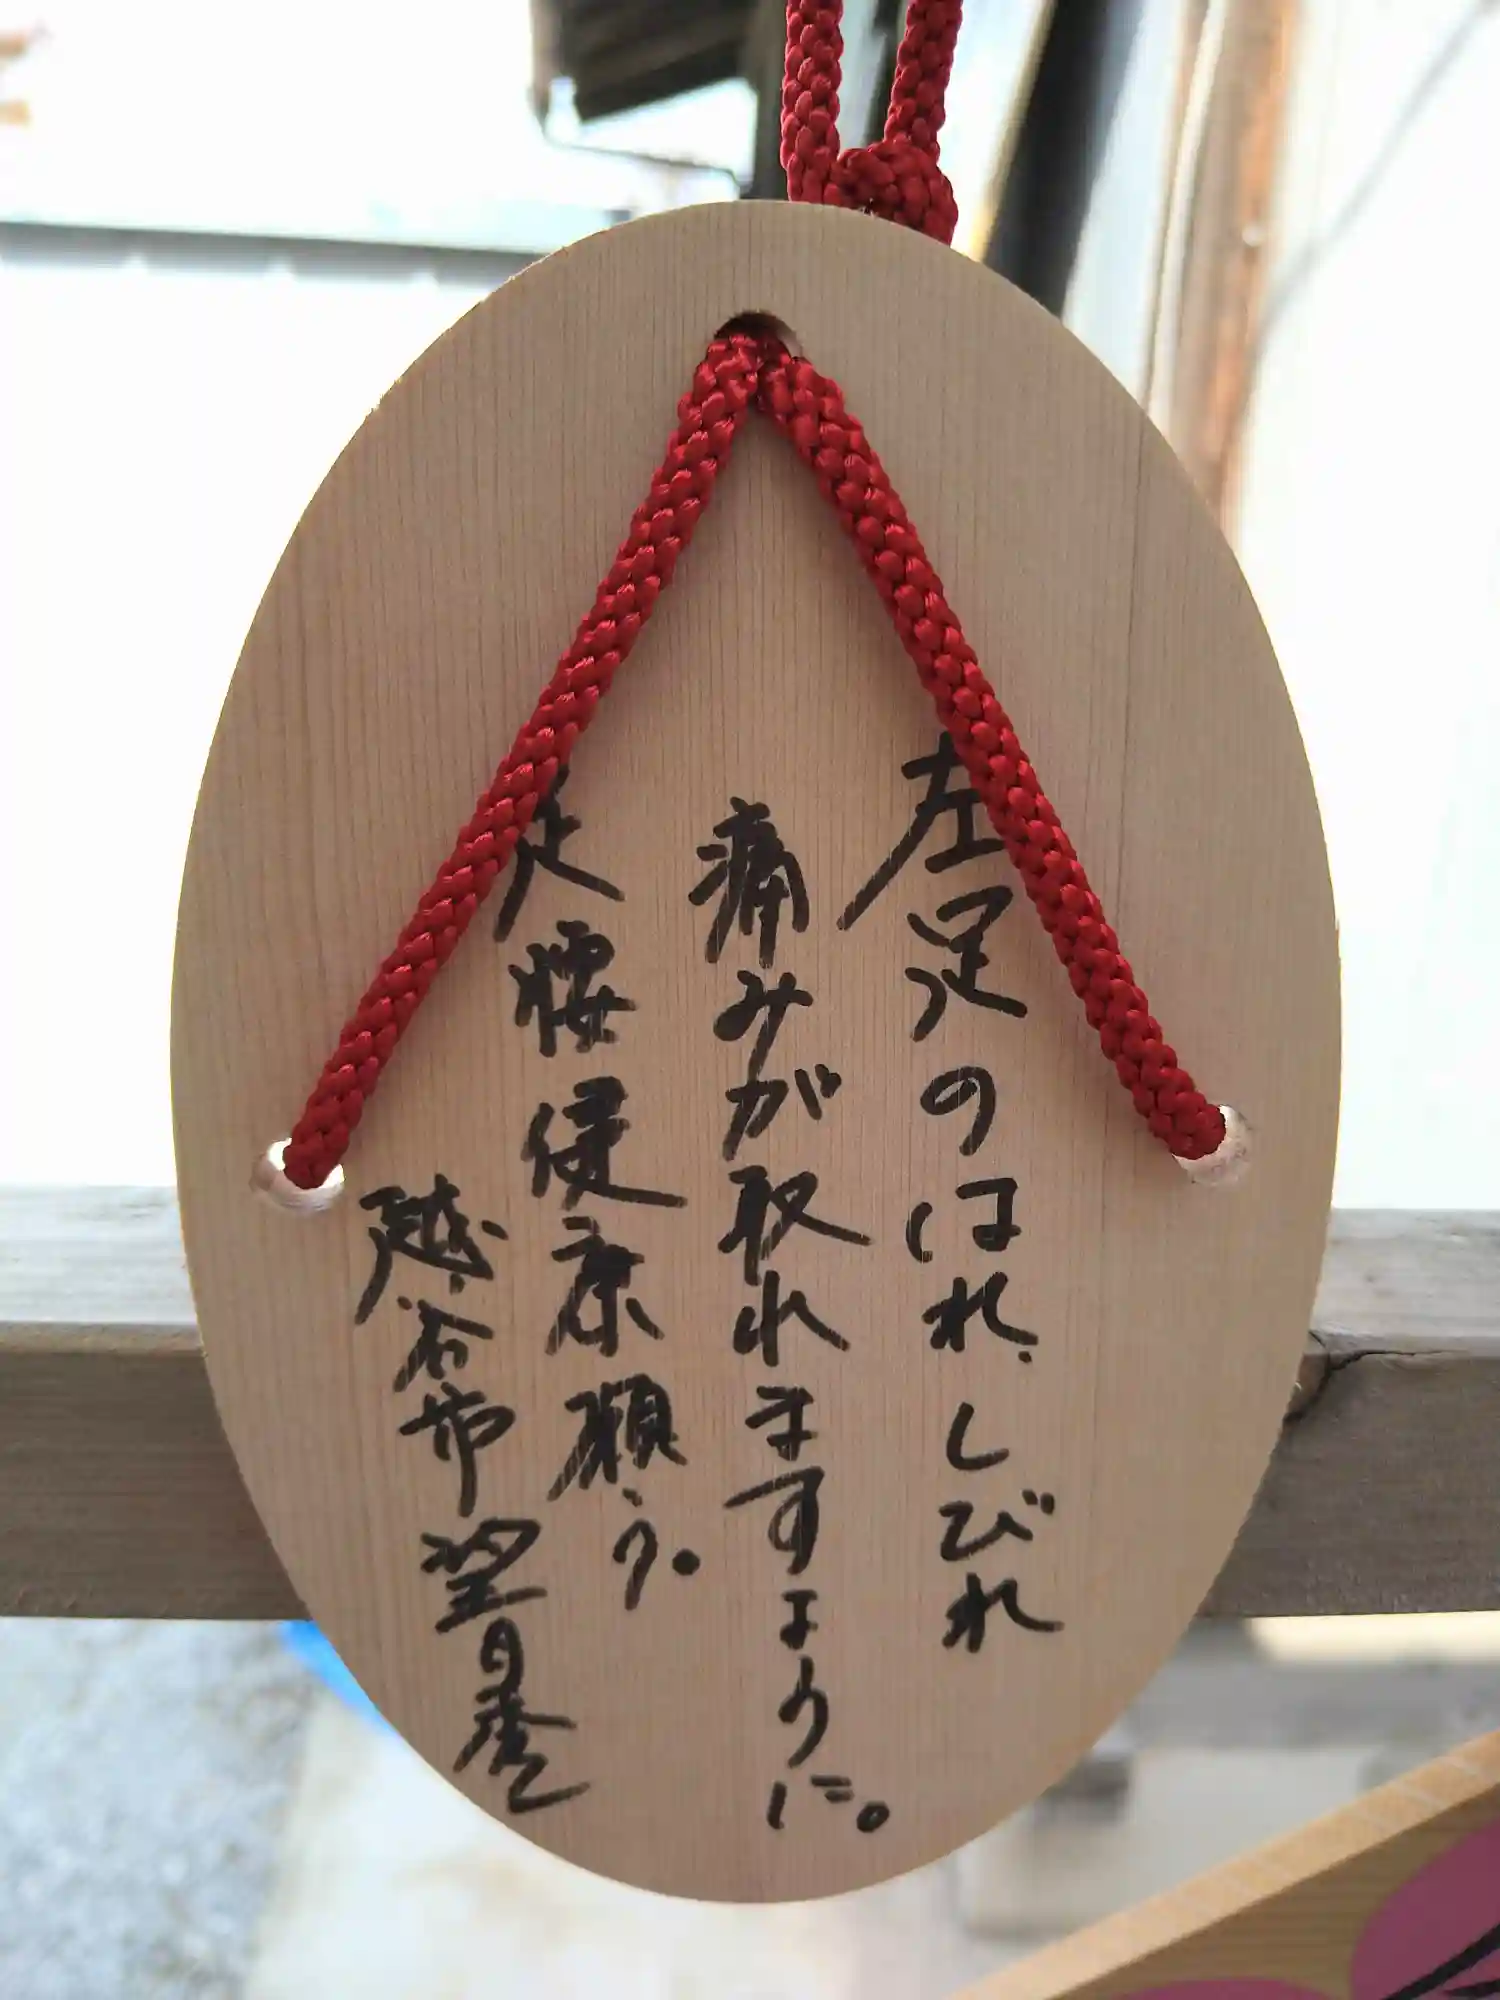 左足のはれ、しびれ
痛みが取れますように。
足腰健康願う。
越谷市